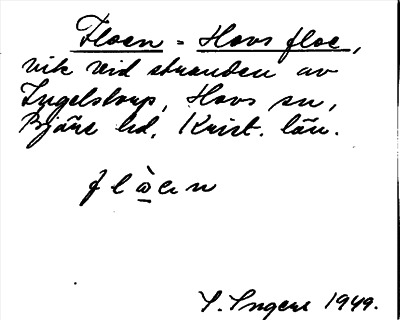 Floen = Hovs floe,
vik vid stranden av
Ingelstorp, Hovs sn,
Bjäre hd, Krist. län.
flòen
I. Ingers 1949.